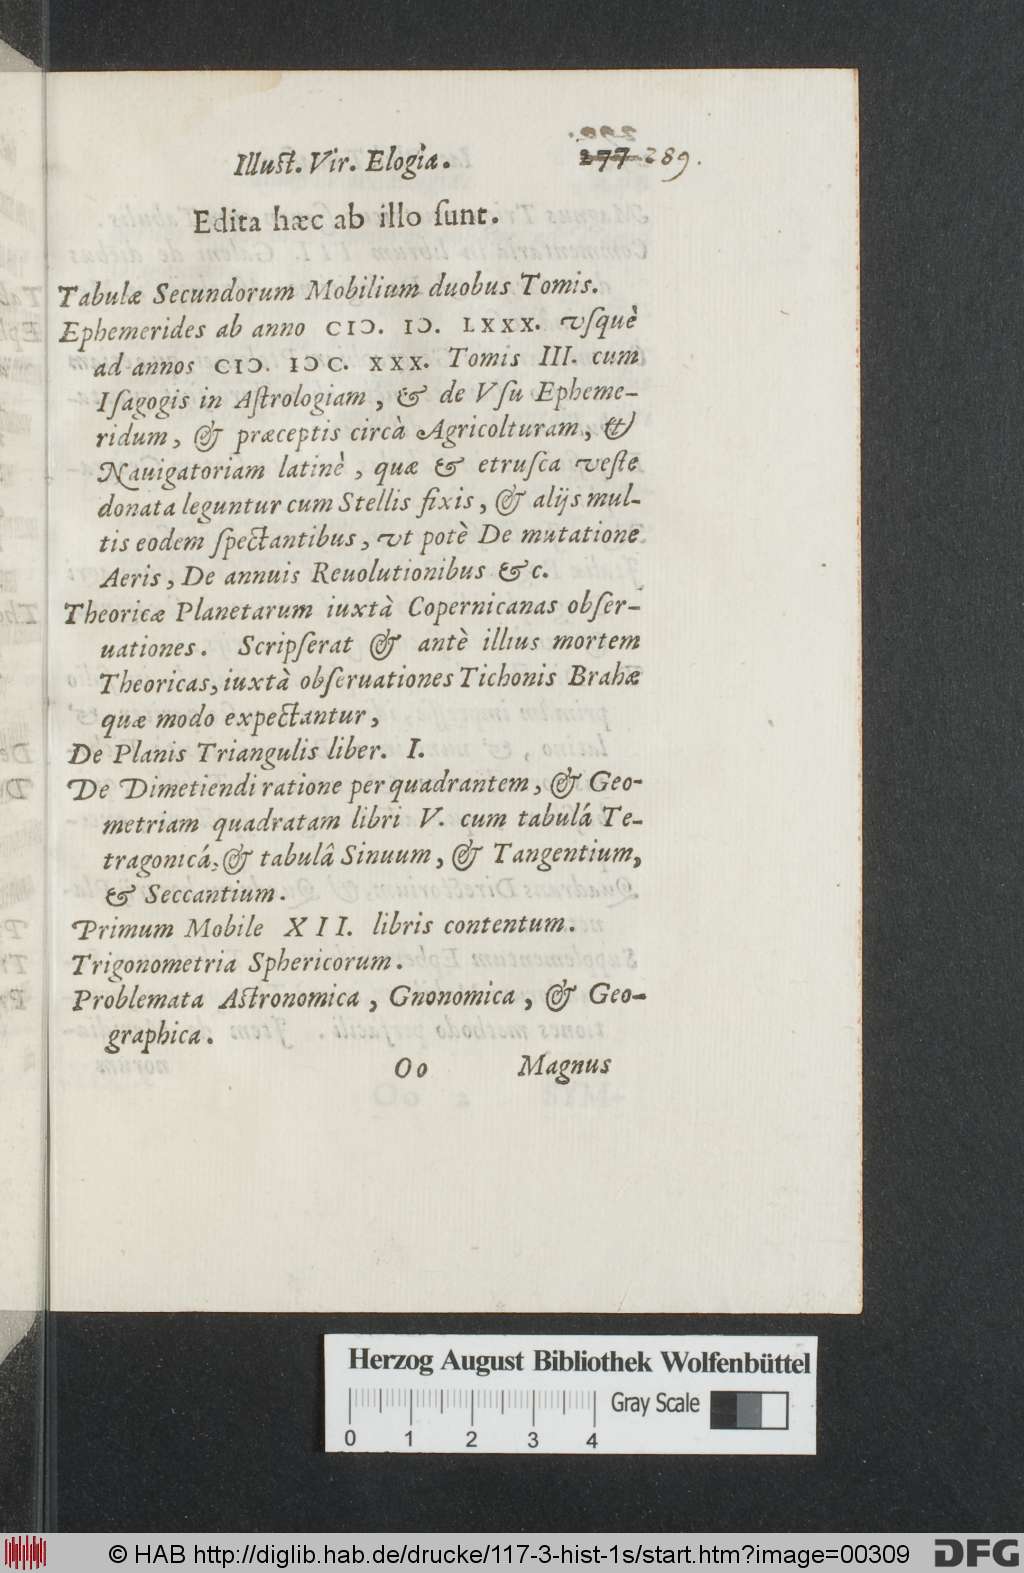 Illust. Vir. Elogia. 277 289.
Edita hæc ab illo ſunt.
Tabulæ Secundorum Mobilium duobus Tomis.
Ephemerides ab anno CIↃ. IↃ. LXXX. vſquè
ad annos CIↃ. IↃC. XXX. Tomis III. cum
Iſagogis in Aſtrologiam, & de Vſu Epheme-
ridum, & præceptis circà Agricolturam, &
Nauigatoriam latinè, quæ & etruſca veſte
donata leguntur cum Stellis fixis, & alijs mul-
tis eodem ſpectantibus, vt potè De mutatione
Aeris, De annuis Reuolutionibus &c.
Theoricæ Planetarum iuxtà Copernicanas obſer-
uationes. Scripſerat & antè illius mortem
Theoricas, iuxtà obſeruationes Tichonis Brahæ
quæ modo expectantur,
De Planis Triangulis liber. I.
De Dimetiendi ratione per quadrantem, & Geo-
metriam quadratam libri V. cum tabulá Te-
tragonicá, & tabulâ Sinuum, & Tangentium,
& Seccantium.
Primum Mobile XII. libris contentum.
Trigonometria Sphericorum.
Problemata Astronomica, Gnonomica, & Geo-
graphica.
Oo Magnus
Herzog August Bibliothek Wolfenbüttel
Gray Scale
0 1 2 3 4
© HAB http://diglib.hab.de/drucke/117-3-hist-1s/start.htm?image=00309 DFG